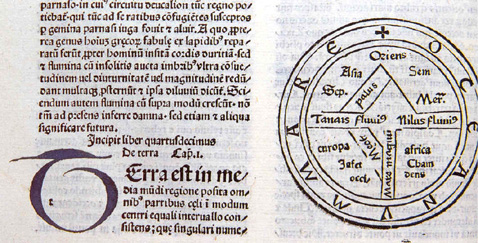 parnaso in cui⁹ circuitu deucalion tūc regno po
tiebat᷑ qui tūc ad se ratibus cōfugiētes susceptos
p gemina parnasi iuga fouit ⁊ aluit. A quo, ppter
rea genus hoius grecoꝝ fabule ex lapidib⁹ repa
ratū ferūt, ppter hominū insitā cordis duritiā. sed
⁊ flumina cū insolitis aucta imbrib⁹ vltra cōsue⸗
tudinem vel diuturnitatē vel magnitudinē redū⸗
dant multaqꝫ, psternūt ⁊ ipsa diluuiū dicūt. Sci⸗
endum autem flumina cū supra modū crescūt. nō
tm̄ ad presens inferre damna. sed etiam ⁊ aliqua
significare futura.
Incipit liber quartusdecimus
De terra Cap. i.
TErra est in me⸗
dia mūdi regione posita om⸗
nib⁹ partibus celi ī modum
centri equali interuallo con
sistens; que singulari nume⸗
MARE OCEANVM
Oriens
Asia Sem
Sep. Mer.
palus
Tanais fluui⁹ Nilus fluui⁹
Meot
Mare magnum
europa africa
Iafet Cham
occi. dens